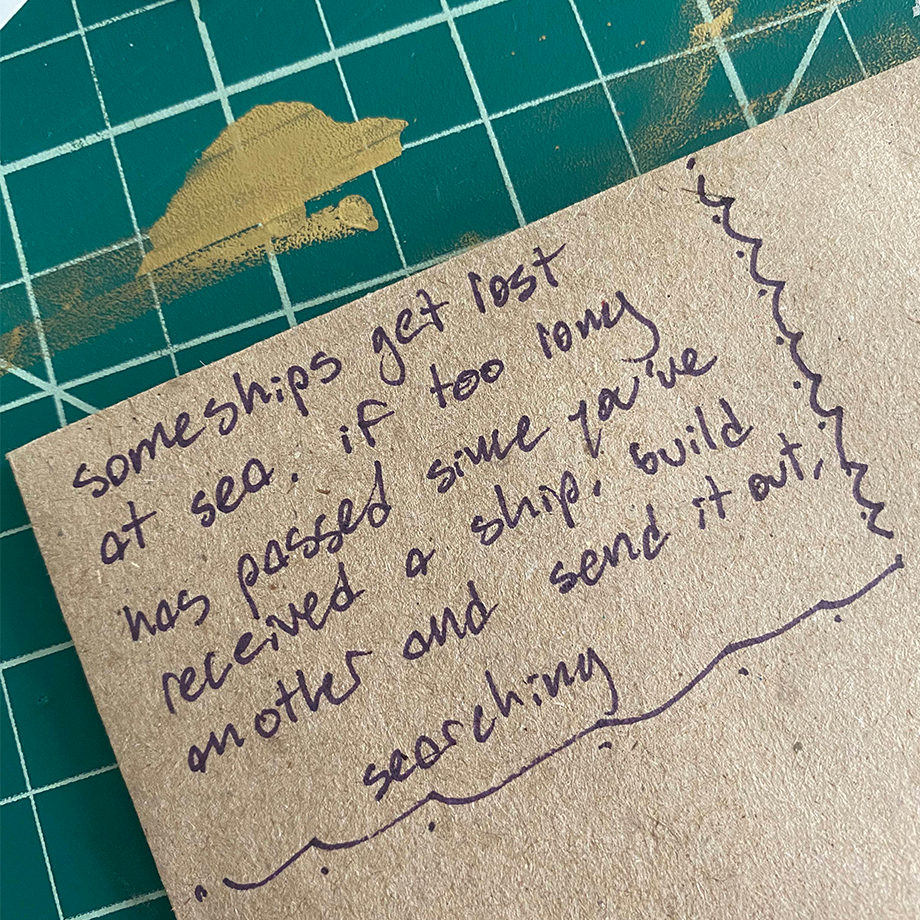 some ships get lost
at sea. if too long
has passed since you've
received a ship, build
another and send it out,
searching